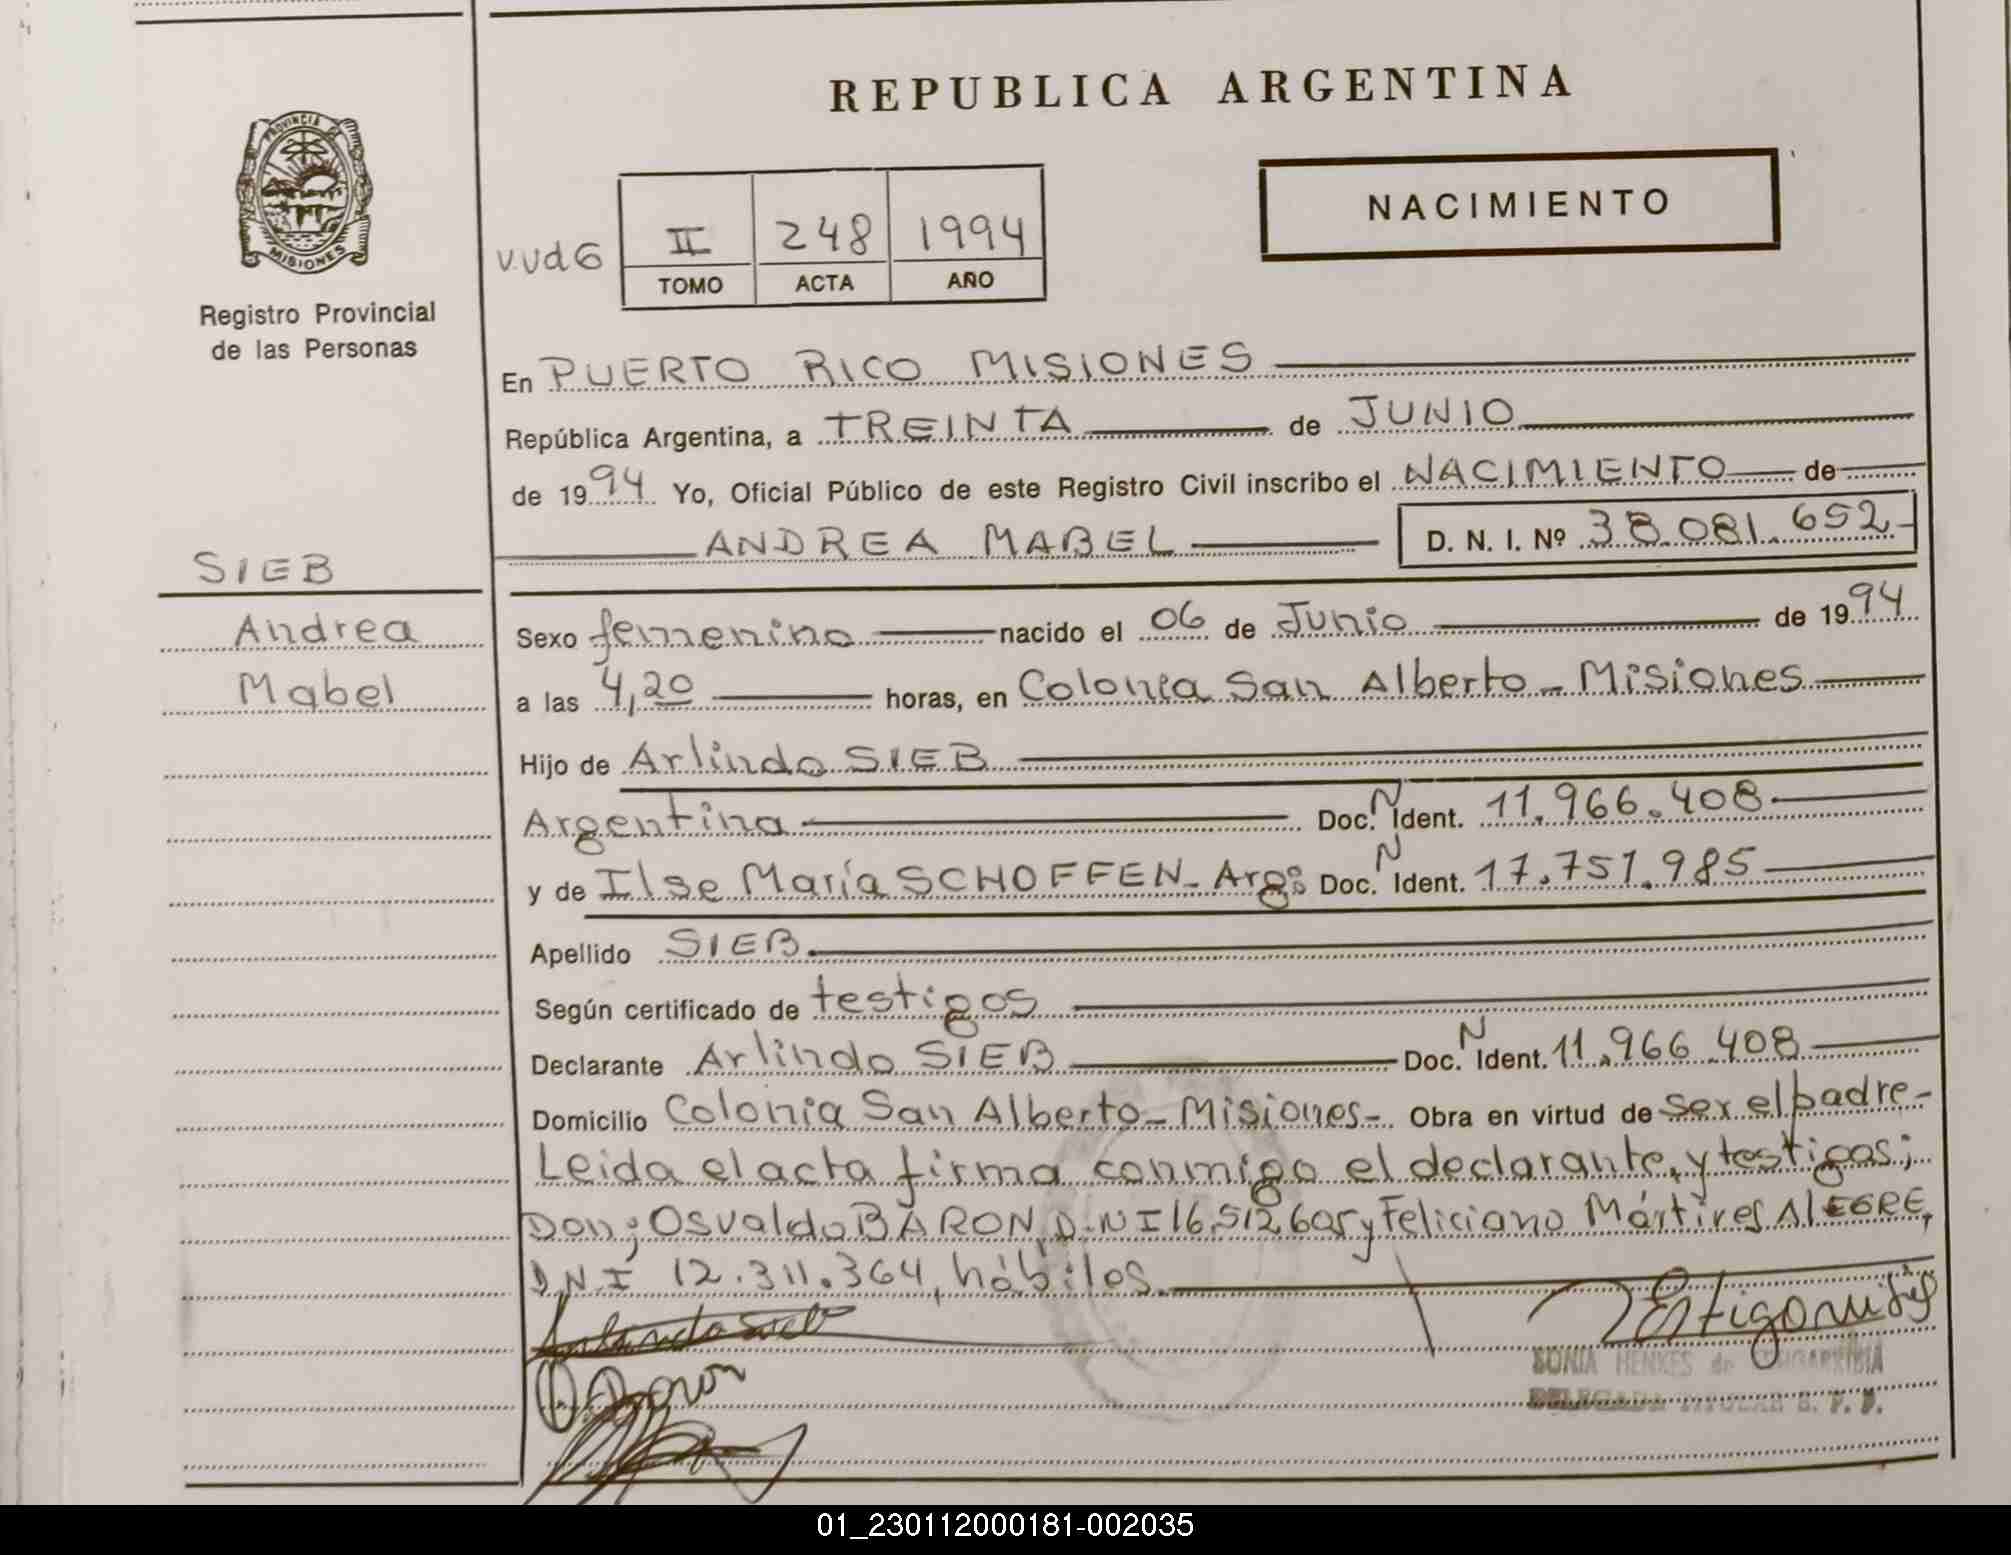 REPUBLICA ARGENTINA
PROVINCIA DE
MISIONES
Registro Provincial
de las Personas
NACIMIENTO
II 248 1994
TOMO ACTA AÑO
En PUERTO RICO MISIONES
República Argentina, a TREINTA de JUNIO
de 1994 Yo, Oficial Público de este Registro Civil inscribo el NACIMIENTO de
ANDREA MABEL D. N. I. Nº 38.081.652-
SIEB
Andrea
Mabel
Sexo femenino nacido el 06 de Junio de 1994
a las 4,20 horas, en Colonia San Alberto - Misiones
Hijo de Arlindo SIEB
Argentina Doc. N Ident. 11.966.408
y de Ilse María SCHOFFEN - Arg: Doc. N Ident. 17.751.985
Apellido SIEB
Según certificado de testigos
Declarante Arlindo SIEB Doc. N Ident. 11.966.408
Domicilio Colonia San Alberto - Misiones-. Obra en virtud de Ser el padre-
Leida el acta firma conmigo el declarante, y testigos;
Don; Osvaldo BARON, D.N I 16.512.605 y Feliciano Mártires ALEGRE,
D.N.I 12.311.364, hábiles.
SONIA HENKES de
DELEGADA TITULAR R. P. P.
01_230112000181-002035